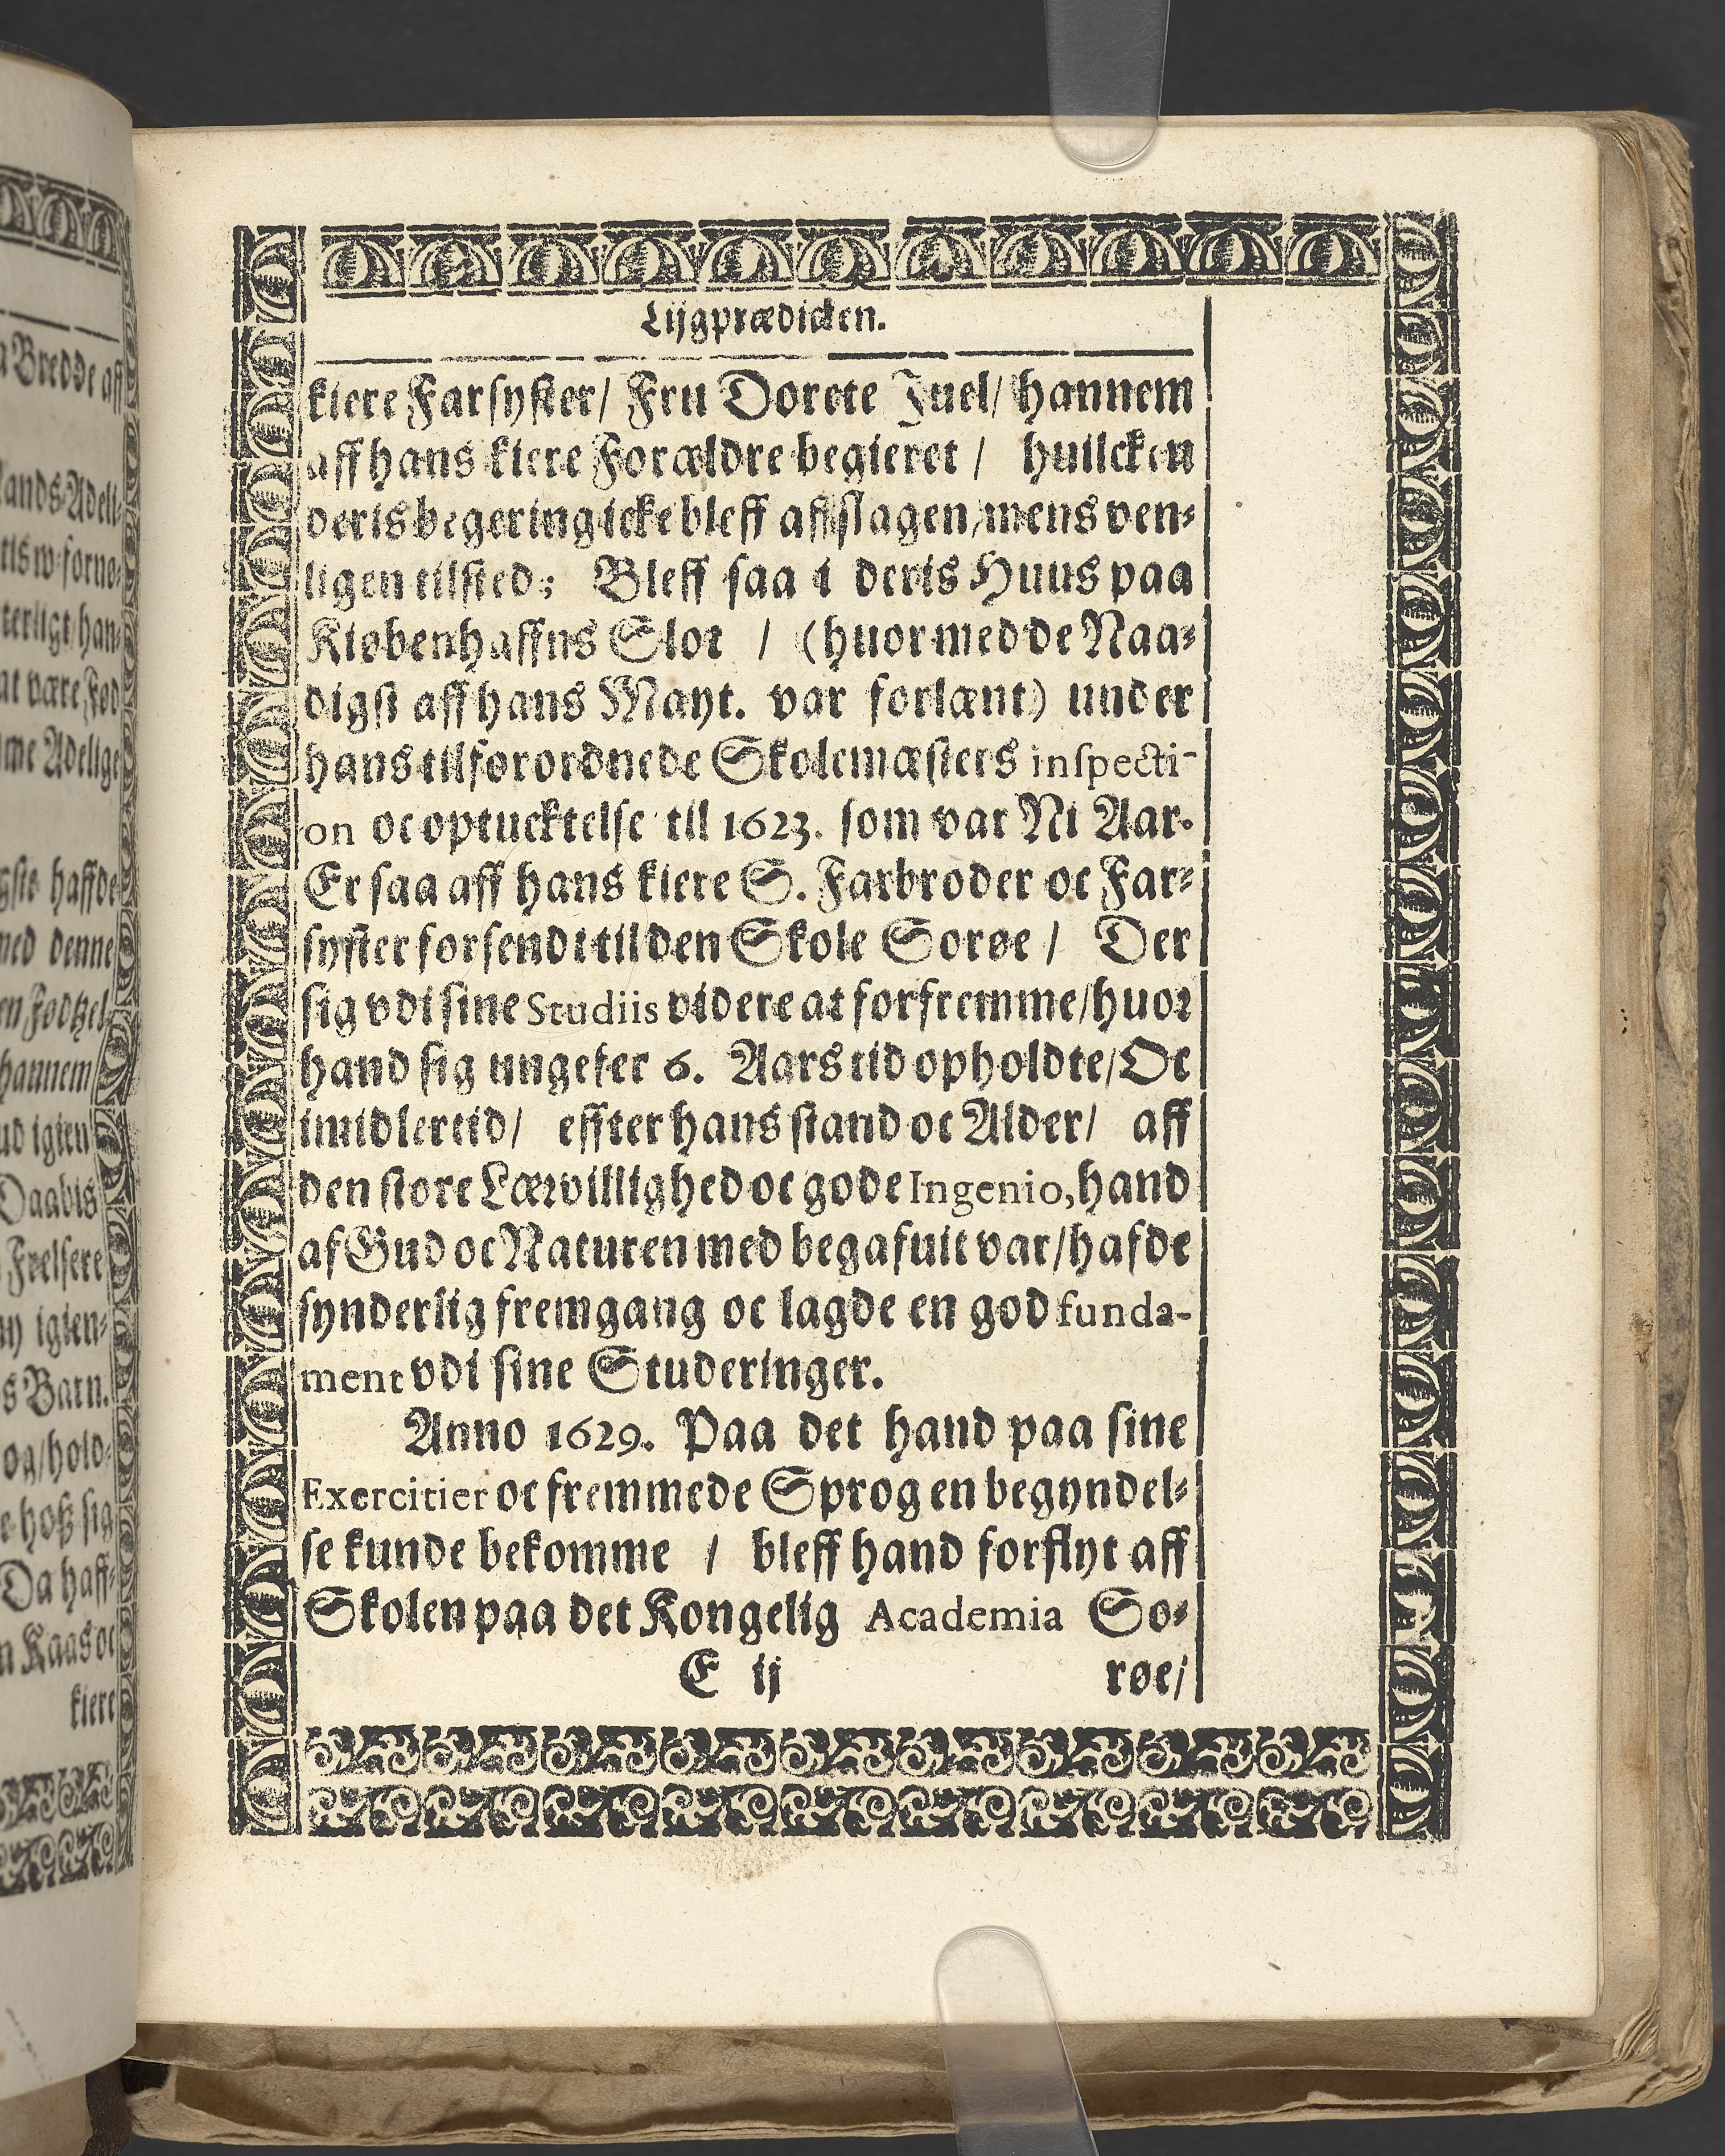 Lijgprædicken.
kiere Farsyster/ Fru Dorete Juel/ hannem
aff hans kiere Forældre begieret / huilcken
deris begering icke bleff affslagen/mens ven-
ligen tilsted; Bleff saa i deris Huus paa
Kiøbenhaffns Slot / (huor med de Naa-
digst aff hans Mayt. var forlænt) under
hans tilforordnede Skolemæsters inspecti-
on oc optucktelse til 1623. som var Ni Aar.
Er saa aff hans kiere S. Farbroder oc Far-
syster forsendt til den Skole Sorøe / Der
sig vdi sine Studiis videre at forfremme/huor
hand sig ungefer 6. Aars tid opholdte/Oc
imidlertid/ effter hans stand oc Alder/ aff
den store Lærvillighed oc gode Ingenio, hand
af Gud oc Naturen med begafuit var/hafde
synderlig fremgang oc lagde en god funda-
ment vdi sine Studeringer.
Anno 1629. Paa det hand paa sine
Exercitier oc fremmede Sprog en begyndel-
se kunde bekomme / bleff hand forflyt aff
Skolen paa det Kongelig Academia So-
E ij røe/